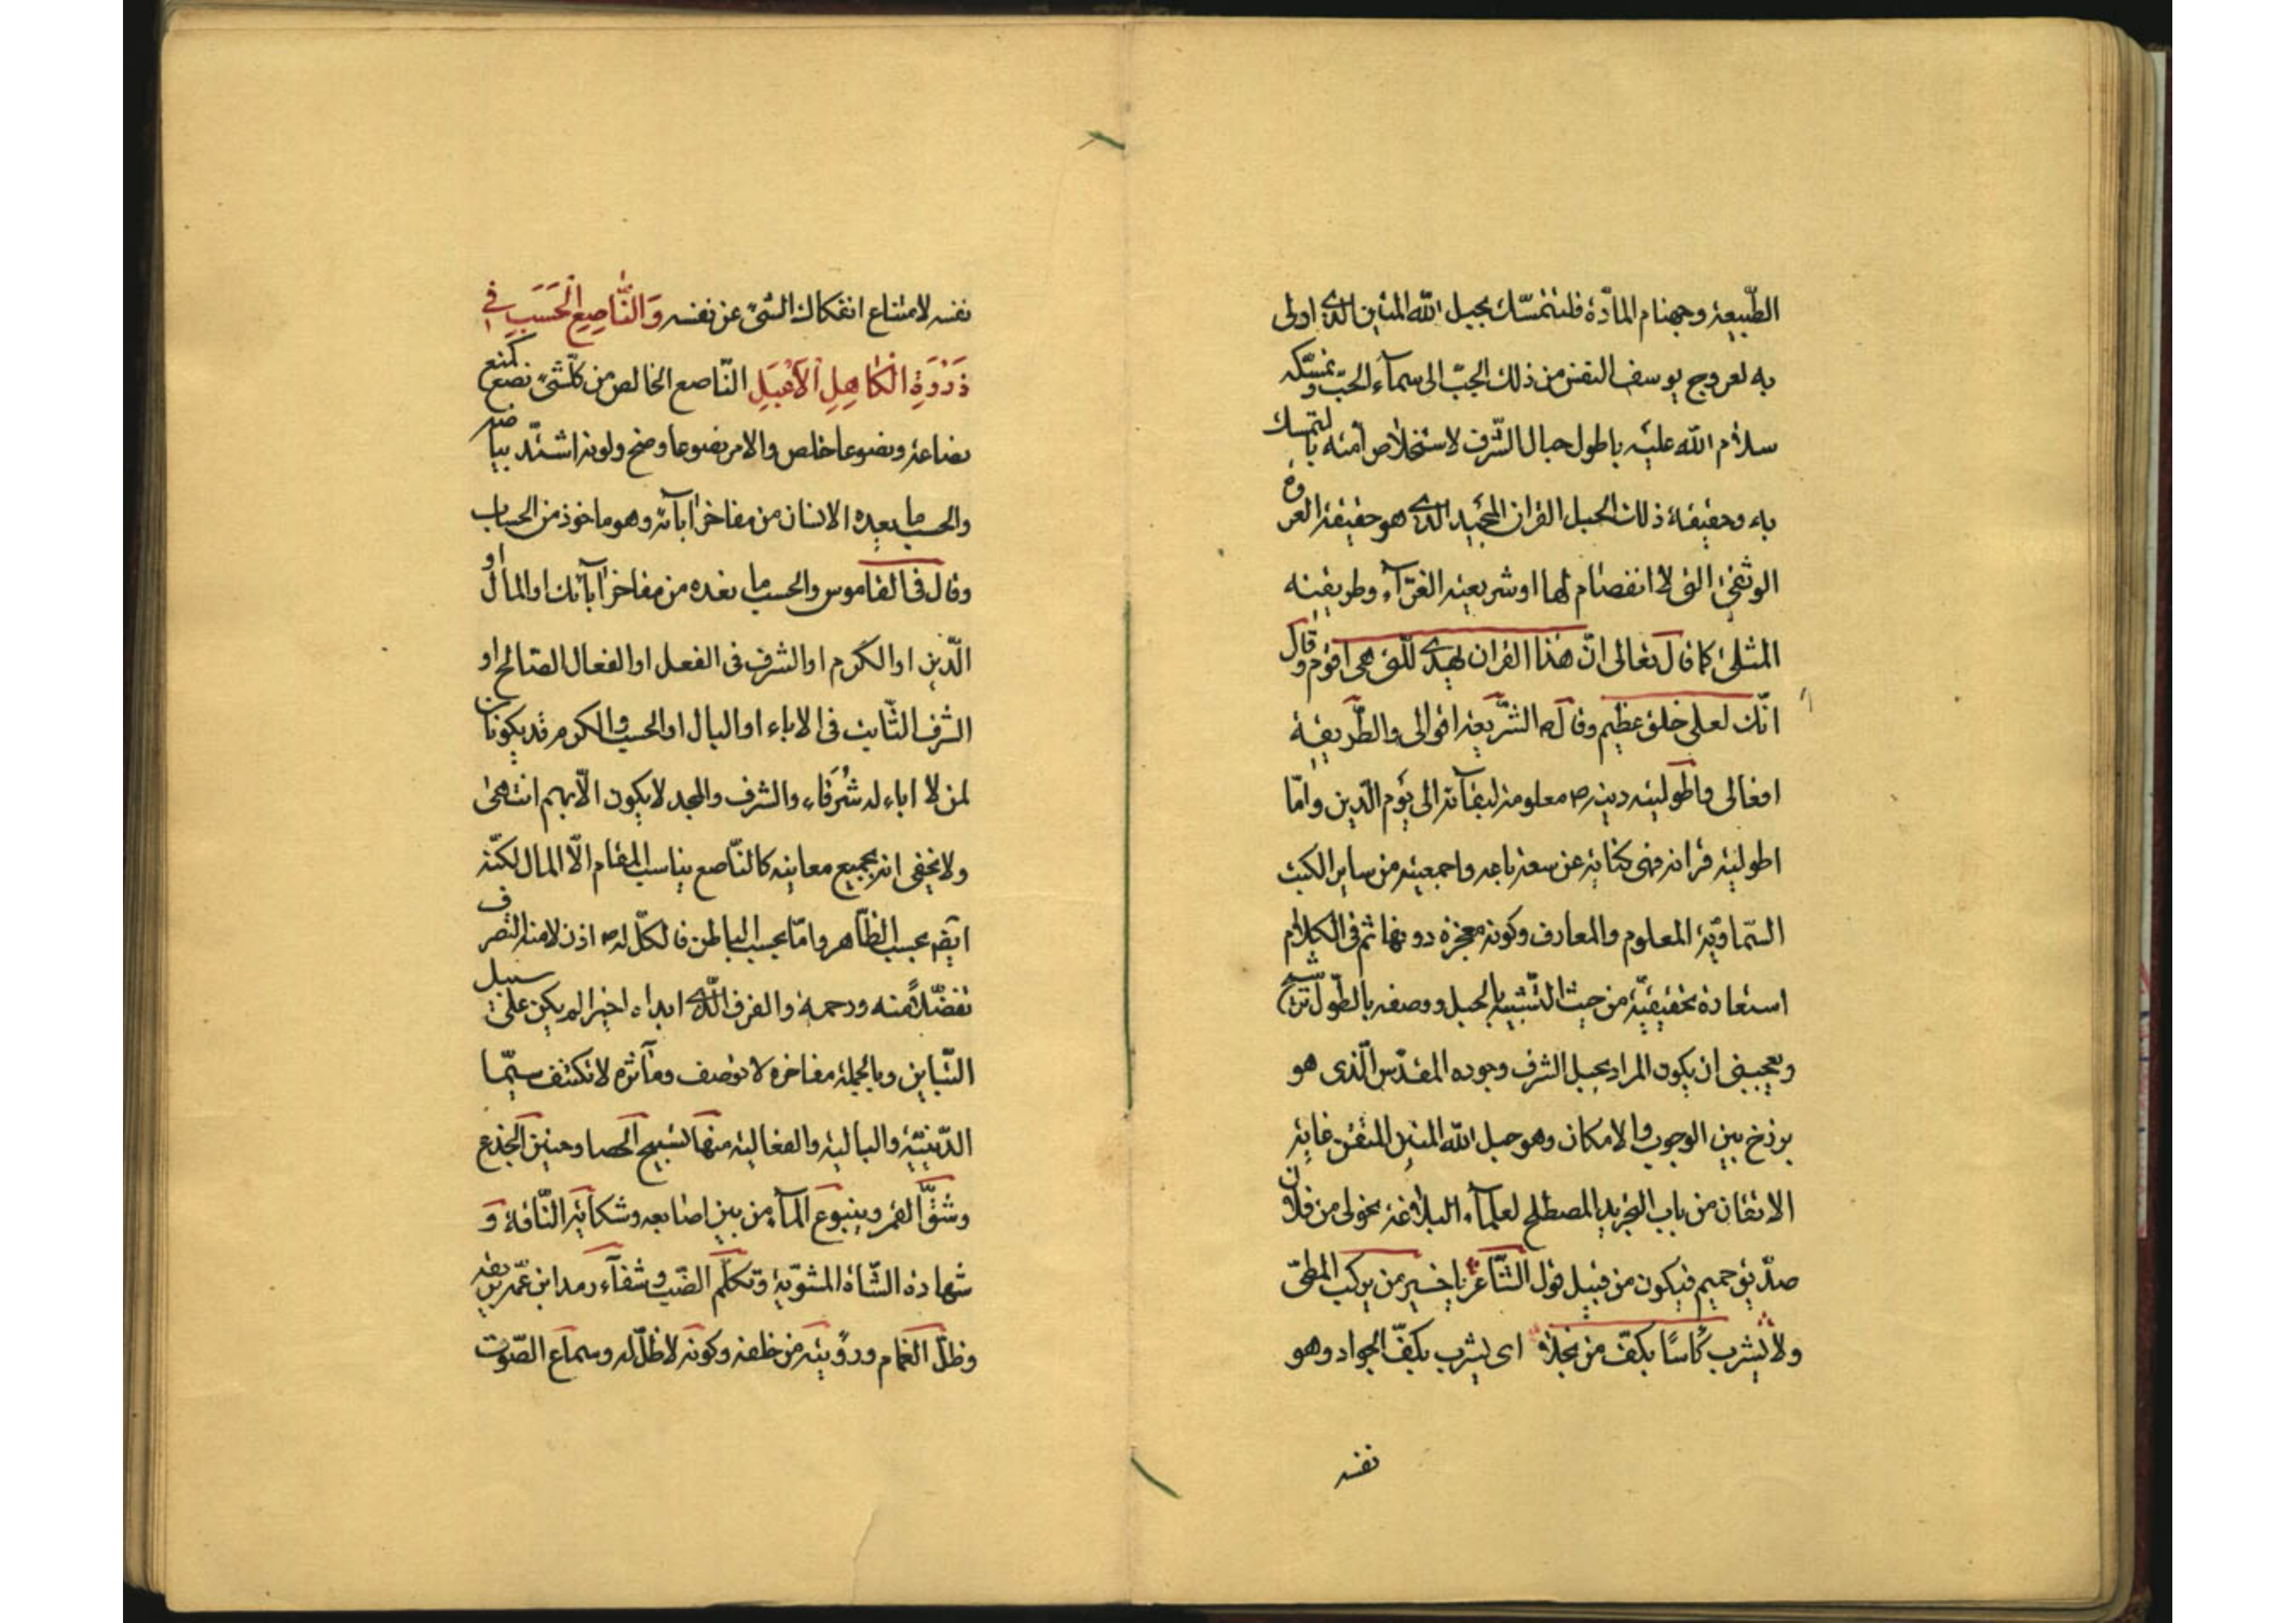 الطّبيعة وجهنام المادّة فلنتمسّك بحبل الله المتين الّذى اولى
به لعروج يوسف النفس من ذلك الجبّ الى سمآء الحبّ وتمسّكه
سلام الله عليه باطول حبال الشّرف لاستخلاص امّته بالتمسك
به وحقيقة ذلك الحبل القران المجيد الذى هو حقيقة العروة
الوثقى التى لا انفصام لها او شريعته الغرّآء وطريقته
المثلى كما قال تعالى انّ هذا القران يهدى للّتى هى اقوم وقال
انّك لعلى خلق عظيم وقال ص الشّريعة اقوالى والطّريقة
افعالى واطولية دينه ص معلومة لبقآئه الى يوم الدّين وامّا
اطولية قرانه فهى كناية عن سعة باعه واجمعيته من ساير الكتب
السّماويّة المعلوم والمعارف وكونه معجزة دونها ثم فى الكلام
استعارة تحقيقيّة من حيث التّشبيه بالحبل ووصفه بالطّول ترشيح
ويعجبنى ان يكون المراد بحبل الشرف وجوده المقدّس الّذى هو
برزخ بين الوجوب والامكان وهو حبل الله المتين المتقن غاية
الاتقان من باب التجريد المصطلح لعلمآء البلاغة نحو لى من فلان
صدّيق حميم فيكون من قبيل قول الشّاعر يا خير من يركب المطىّ
ولا يشرب كأسًا بكفّ من بخلا اى يشرب بكفّ الجواد وهو
نفسه
نفسه لامتناع انفكاك الشّىء عن نفسه وَالنَّاصِعِ الْحَسَبِ فِى
ذَرْوَةِ الْكَاهِلِ الْأَعْبَلِ النّاصع الخالص من كلّ شىء نصع كمنع
نصاعة ونصوعا خلص والامر نصوعا وضح ولونه اشتدّ بياضه
والحسب ما يعده الانسان من مفاخر آبآئه وهو ماخوذ من الحساب
وقال فى القاموس والحسب ما تعده من مفاخر آبآئك او المال او
الدّين او الكرم او الشرف فى الفعل او الفعال الصّالح او
الشرف الثّابت فى الاباء او البال او الحسب والكرم قد يكونان
لمن لا اباء له شُرَفاء والشرف والمجد لا يكون الّا بهم انتهى
ولا يخفى انه بجميع معانيه كالنّاصع يناسب المقام الّا المال لكنّه
ايضا بحسب الظّاهر وامّا بحسب الباطن فالكلّ له ص اذن لامته التصرف
تفضّلاً منه ورحمة والفرق الّذى ابداه اخيرا لم يكن على سبيل
التّباين وبالجملة مفاخره لا توصف ومآثره لا تكتنف سيّما
الدّينيّة والبالية والفعالية منها تسبيح الحصا وحنين الجذع
وشقّ القمر وينبوع المآء من بين اصابعه وشكاية النّاقة و
شهادة الشّاة المشويّة وتكلّم الضّب وشفآء رمد ابن عمّه بريقه
وظلّ الغمام ورؤيته من خلفه وكونه لا ظلّ له وسماع الصّوت